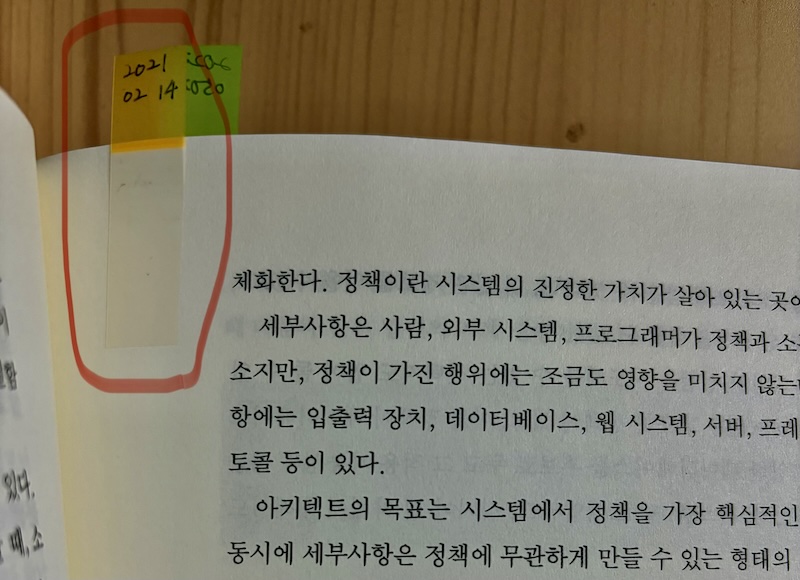 2021
02 14
체화한다. 정책이란 시스템의 진정한 가치가 살아 있는
세부사항은 사람, 외부 시스템, 프로그래머가 정책과
소지만, 정책이 가진 행위에는 조금도 영향을 미치지
항에는 입출력 장치, 데이터베이스, 웹 시스템, 서버,
토콜 등이 있다.
아키텍트의 목표는 시스템에서 정책을 가장 핵심적인
동시에 세부사항은 정책에 무관하게 만들 수 있는 형태의
있다.
때, 소